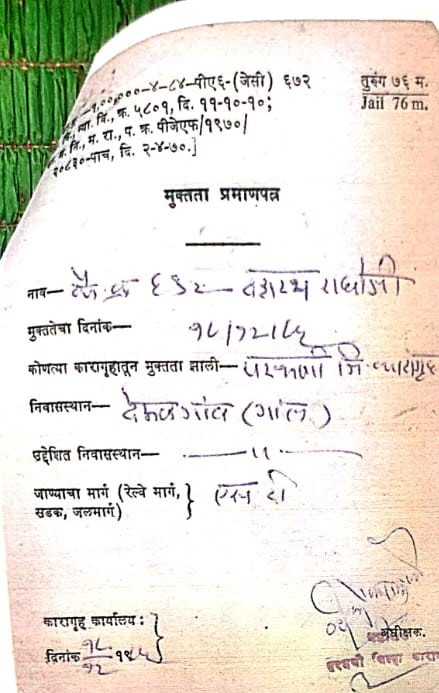 १,००,०००-४-८४-पीए६-(जेसी) ६७२
वि., क्र. ५८०१, दि. ११-१०-१०;
नि., म. रा., प. क्र. पीजेएफ/१९७०/
२०८३०-पाच, दि. २-४-७०.]
तुरुंग ७६ म.
Jail 76 m.
मुक्तता प्रमाणपत्र
नाव— कै क्र ६३२ — दशरथ राघोजी
मुक्ततेचा दिनांक— १८/१२/८५
कोणत्या कारागृहातून मुक्तता झाली— परभणी जि. कारागृह
निवासस्थान— देऊळगांव (गात)
उद्देशित निवासस्थान— —"—
जाण्याचा मार्ग (रेल्वे मार्ग, } एस टी
सडक, जलमार्ग)
कारागृह कार्यालय :
दिनांक १८/१२ १९८५
अधीक्षक.
परभणी जिल्हा कारा